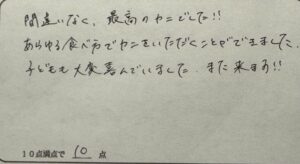 間違いなく、最高のカニでした!!
あらゆる食べ方でカニをいただくことができました。
子どもも大食喜んでいました。また来ます!!
10点満点で 10 点